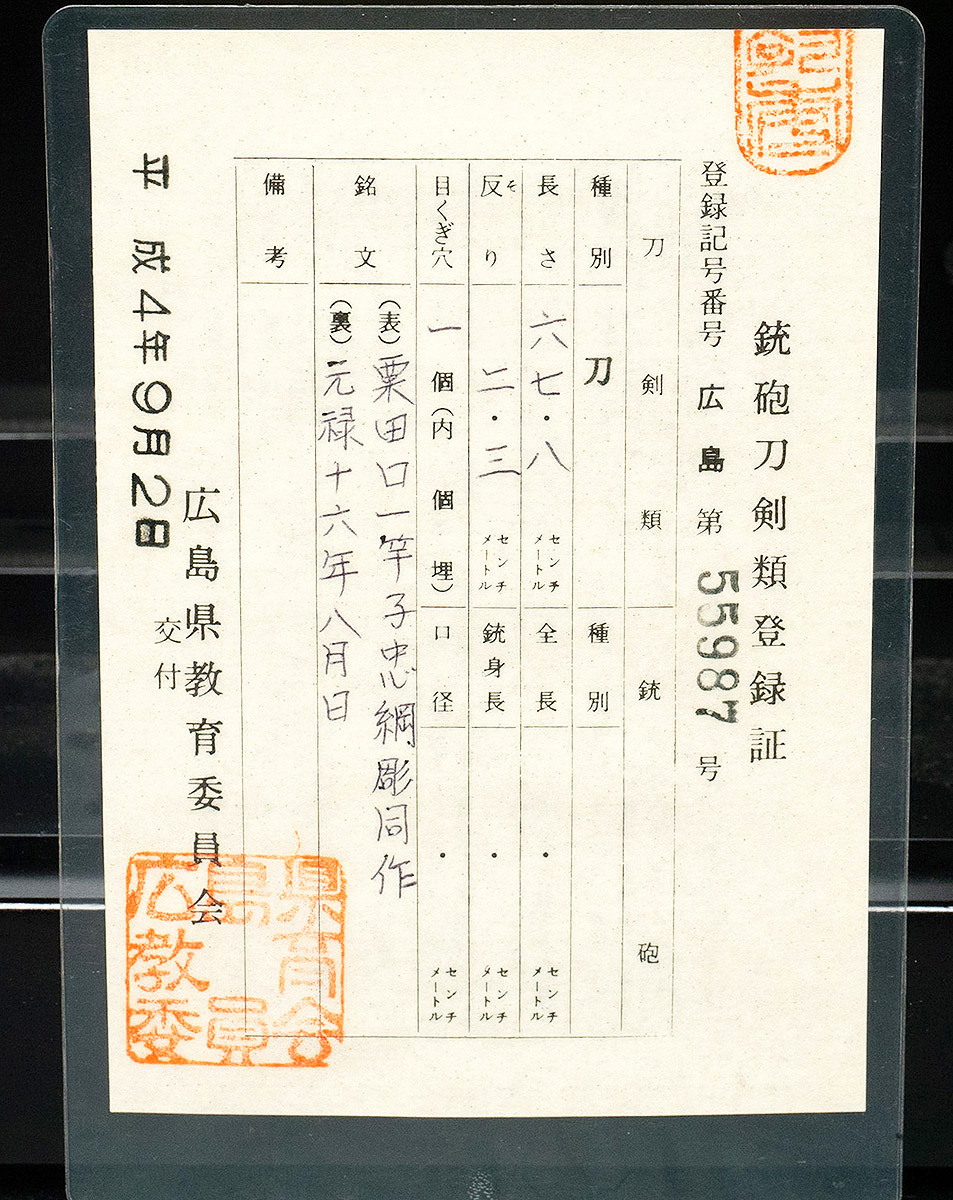 銃砲刀剣類登録証
登録記号番号 広島 第 55987 号
刀剣類
銃砲
種別 刀
種別
長さ 六七・八 センチメートル
全長 ・ センチメートル
反り そ 二・三 センチメートル
銃身長 ・ センチメートル
目くぎ穴 一 個(内 個 埋)
口径 ・ センチメートル
銘文 (表)粟田口一竿子忠綱彫同作
(裏)元禄十六年八月日
備考
平成4年9月2日 交付
広島県教育委員会
広島県教育委員会